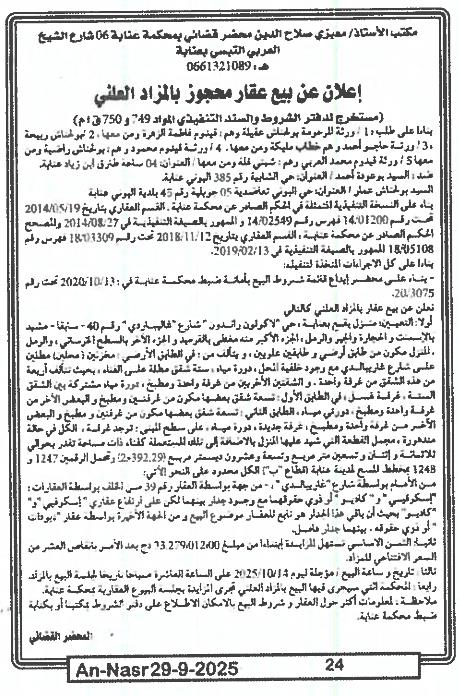 مكتب الأستاذ/ معيزي صلاح الدين محضر قضائي بمحكمة عنابة 06 شارع الشيخ
العربي التبسي بعنابة
هـ: 0661321089
إعلان عن بيع عقار محجوز بالمزاد العلني
(مستخرج لدفتر الشروط والسند التنفيذي المواد 749 و 750 ق إ م)
بناءا على طلب: 1/ ورثة المرحومة بولخناش عقيلة وهم: قيدوم فاطمة الزهرة ومن معها، 2/ بولخناش ربيحة
3/ ورثة حاجو أحمد وهم خطاب مليكة ومن معها. 4/ ورثة قيدوم محمود وهم: بولخناش راضية ومن
معها 5/ ورثة قيدوم محمد العربي وهم: شيني غلة ومن معها/ العنوان: 04 ساحة طارق ابن زياد عنابة.
ضد: السيد بوعودة أحمد/ العنوان: حي الشابية رقم 385 البوني عنابة
السيد بولخناش عمار/ العنوان: حي البوني تعاضدية 05 جويلية رقم 45 بلدية البوني عنابة
بناء على النسخة التنفيذية المتمثلة في الحكم الصادر عن محكمة عنابة، القسم العقاري بتاريخ 2014/05/19
تحت رقم 14/01200 فهرس رقم 14/02549 و الممهور بالصيغة التنفيذية في 2014/08/27 والمصحح
الحكم الصادر عن محكمة عنابة، القسم العقاري بتاريخ 2018/11/12 تحت رقم 18/03309 فهرس رقم
18/05108 الممهور بالصيغة التنفيذية في 2019/02/13.
بناء على كل الاجراءات المتخذة لتنفيذه:
- بناء على محضر إيداع قائمة شروط البيع بأمانة ضبط محكمة عنابة في: 2020/10/13 تحت رقم
20/3075
نعلن عن بيع عقار بالمزاد العلني كالتالي
أولا: التعيين: منزل يقع بعنابة، حي "لاكولون راندون" شارع "غاليباردي" رقم 40 - سابقا - مشيد
بالإسمنت و الحجارة والجير والرمل، الجزء الأكبر منه مغطى بالقرميد و الجزء الآخر بالسطح الخرساني، والرمل
المنزل مكون من طابق أرضي و طابقين علويين، و يتألف من: في الطابق الأرضي: مخزنين (محلين) مطلين
على شارع غاريبالدي مع وجود خلفية المحل، دورة مياه، ستة شقق مطلة على الفناء، بحيث تتألف أربعة
من هذه الشقق من غرفة واحدة، و الشقتين الأخريين من غرفة واحدة ومطبخ، دورة مياه مشتركة بين الشقق
الستة، غرفة غسيل، في الطابق الأول: تسعة شقق بعضها مكون من غرفتين ومطبخ و البعض الآخر من
غرفة واحدة ومطبخ، دورتي مياه، الطابق الثاني: تسعة شقق بعضها مكون من غرفتين و مطبخ و البعض
الآخر من غرفة واحدة ومطبخ، غرفة جديدة، دورة مياه، على سطح المبنى: توجد غرفة، الكل في حالة
متدهورة، مجمل القطعة التي شيد عليها المنزل بالاضافة إلى تلك المستعملة كفناء ذات مساحة تقدر بحوالي
ثلاثمائة و إثنتان و تسعين متر مربع وتسعة و عشرون ديسمتر مربع (392.29م2) وتحمل الرقمين 1247 و
1248 بمخطط المسح لمدينة عنابة القطاع "ب" الكل محدود على النحو الآتي:
من الأمام بواسطة شارع "غاريبالدي"، - من جهة بواسطة العقار رقم 39 من الخلف بواسطة العقارات:
"إسكوفيي" و "كاديو" أو ذوي حقوقهما مع وجود جدار بينهما لكن على ارتفاع عقاري "إسكوفيي" و"
"كاديو" بحيث أن باقي هذا الجدار هو تابع للعقار موضوع البيع و من الجهة الأخيرة بواسطة عقار
" أو ذوي حقوقه، بينهما جدار فاصل.
ثانيا: الثمن الاساسي تستهل المزايدة إبتداءا من مبلغ 33.279/012/00 دج بعد الأمر بانقاص العشر من
السعر الافتتاحي للمزاد.
ثالثا: تاريخ و ساعة البيع/ مؤجلة ليوم 2025/10/14 على الساعة العاشرة صباحا تاريخا لجلسة البيع بالمزاد
رابعا: المحكمة التي سيجرى فيها البيع بالمزاد العلني تجرى المزايدة بجلسة البيوع العقارية بمحكمة عنابة.
ملاحظة: لمعلومات أكثر حول العقار و شروط البيع بالامكان الاطلاع على دفتر الشروط بمكتبنا أو بكتابة
ضبط محكمة عنابة.
المحضر القضائي
An-Nasr 29-9-2025
24